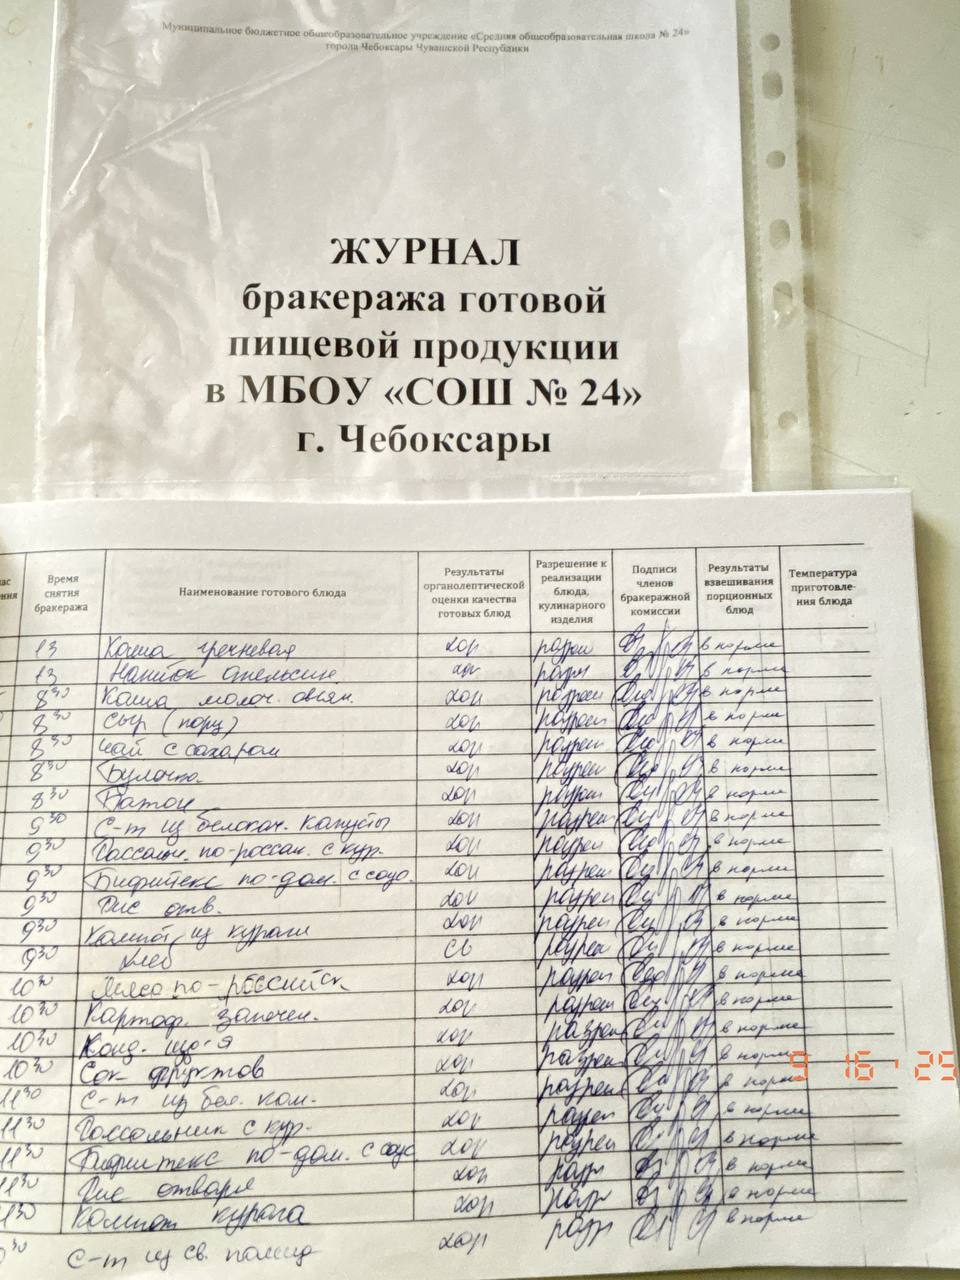 Муниципальное бюджетное общеобразовательное учреждение «Средняя общеобразовательная школа № 24»
города Чебоксары Чувашской Республики
ЖУРНАЛ
бракеража готовой
пищевой продукции
в МБОУ «СОШ № 24»
г. Чебоксары
Время снятия бракеража Наименование готового блюда Результаты органолептической оценки качества готовых блюд Разрешение к реализации блюда, кулинарного изделия Подписи членов бракеражной комиссии Результаты взвешивания порционных блюд Температура приготовле-ния блюда
13 Каша гречневая хор разреш в норме
13 Напиток апельсин. хор разр в норме
8 30 Каша молоч. овсян. хор разреш в норме
8 30 Сыр (порц) хор разреш в норме
8 30 Чай с сахаром хор разреш в норме
8 30 Булочка хор разреш в норме
8 30 Батон хор разреш в норме
9 30 С-т из белокач. капусты хор разреш в норме
9 30 Рассольн. по-россий. с кур. хор разреш в норме
9 30 Бифштекс по-дом. с соус. хор разреш в норме
9 30 Рис отв. хор разреш в норме
9 30 Компот из кураги хор разреш в норме
9 30 Хлеб св разреш в норме
10 30 Мясо по-российск хор разреш в норме
10 30 Картоф. запечен. хор разреш в норме
10 30 Конд. изд-я хор разреш в норме
10 30 Сок фруктов хор разреш в норме
11 30 С-т из бел. кап. хор разреш в норме
11 30 Рассольник с кур. хор разреш в норме
11 30 Бифштекс по-дом. с соус хор разреш в норме
11 30 Рис отварн хор разр в норме
11 30 Компот курага хор разр в норме
30 С-т из св. помид хор разр в норме
9 16 '25